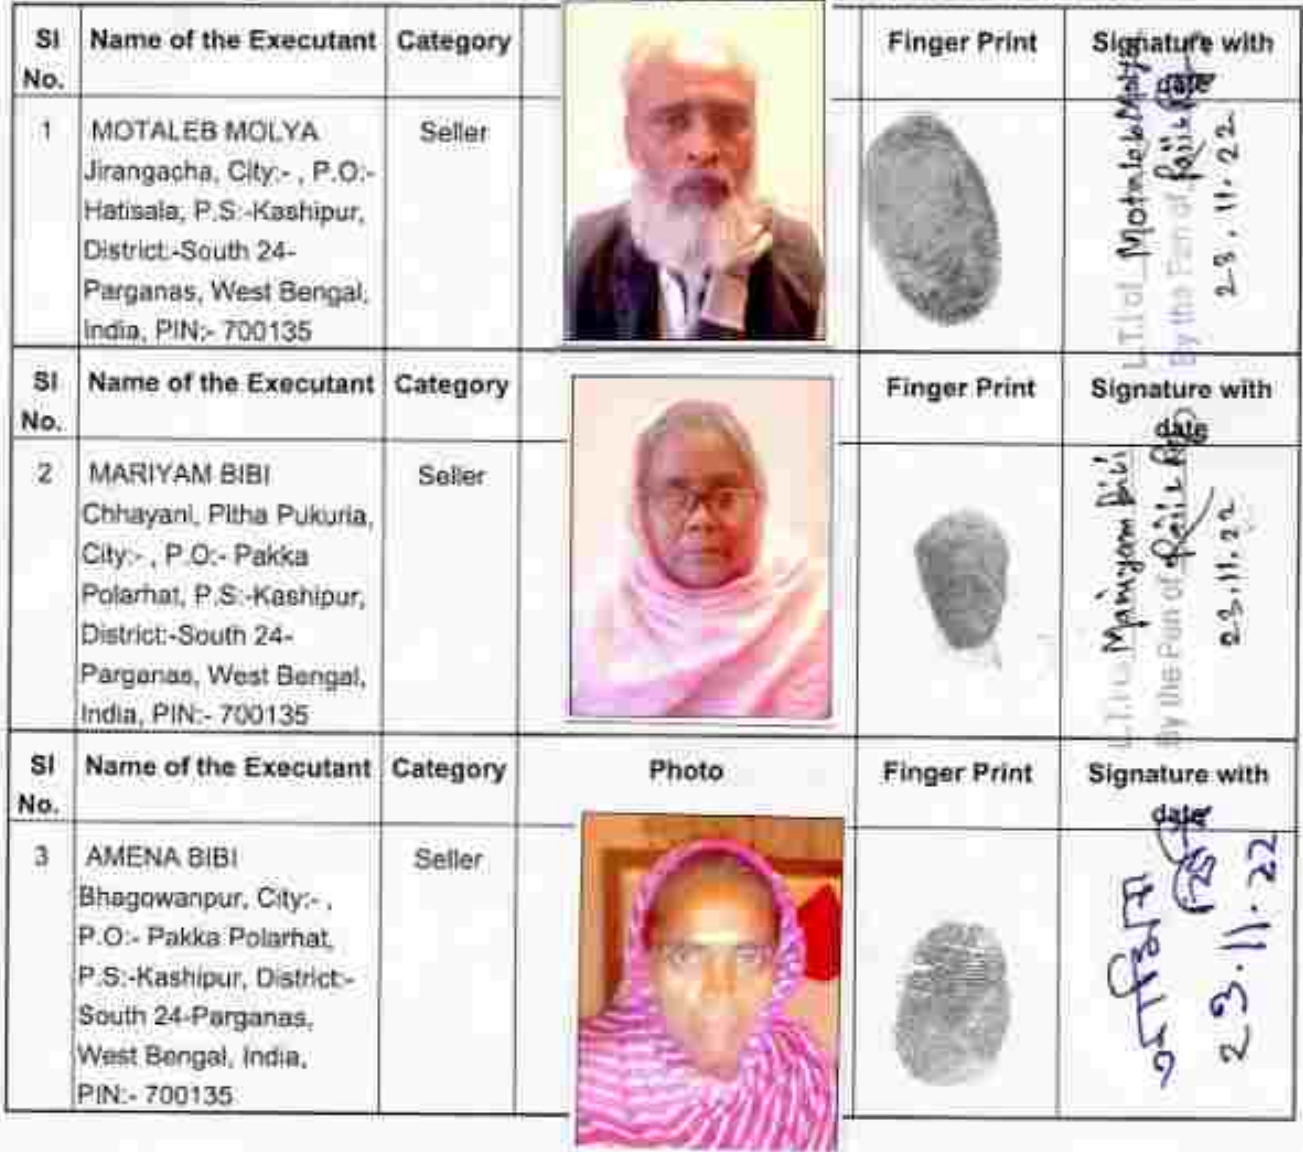 Sl No. Name of the Executant Category Finger Print Signature with date
1 MOTALEB MOLYA Seller
Jirangacha, City:- , P.O:-
Hatisala, P.S:-Kashipur,
District:-South 24-
Parganas, West Bengal,
India, PIN:- 700135
L.T.I of Motaleb Molya
By the Pen of
23.11.22
Sl No. Name of the Executant Category Finger Print Signature with date
2 MARIYAM BIBI Seller
Chhayani, Pitha Pukuria,
City:- , P.O:- Pakka
Polarhat, P.S:-Kashipur,
District:-South 24-
Parganas, West Bengal,
India, PIN:- 700135
L.T.I Mariyam Bibi
By the Pen of
23.11.22
Sl No. Name of the Executant Category Photo Finger Print Signature with date
3 AMENA BIBI Seller
Bhagowanpur, City:- ,
P.O:- Pakka Polarhat,
P.S:-Kashipur, District:-
South 24-Parganas,
West Bengal, India,
PIN:- 700135
23.11.22